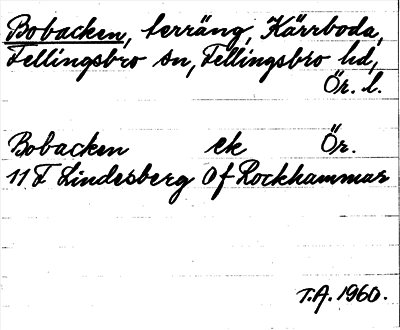 Bobacken, terräng, Kärrboda,
Fellingsbro sn, Fellingsbro hd,
Ör. l.
Bobacken ek Ör.
11 F Lindesberg 0 f Rockhammar
T.A. 1960.